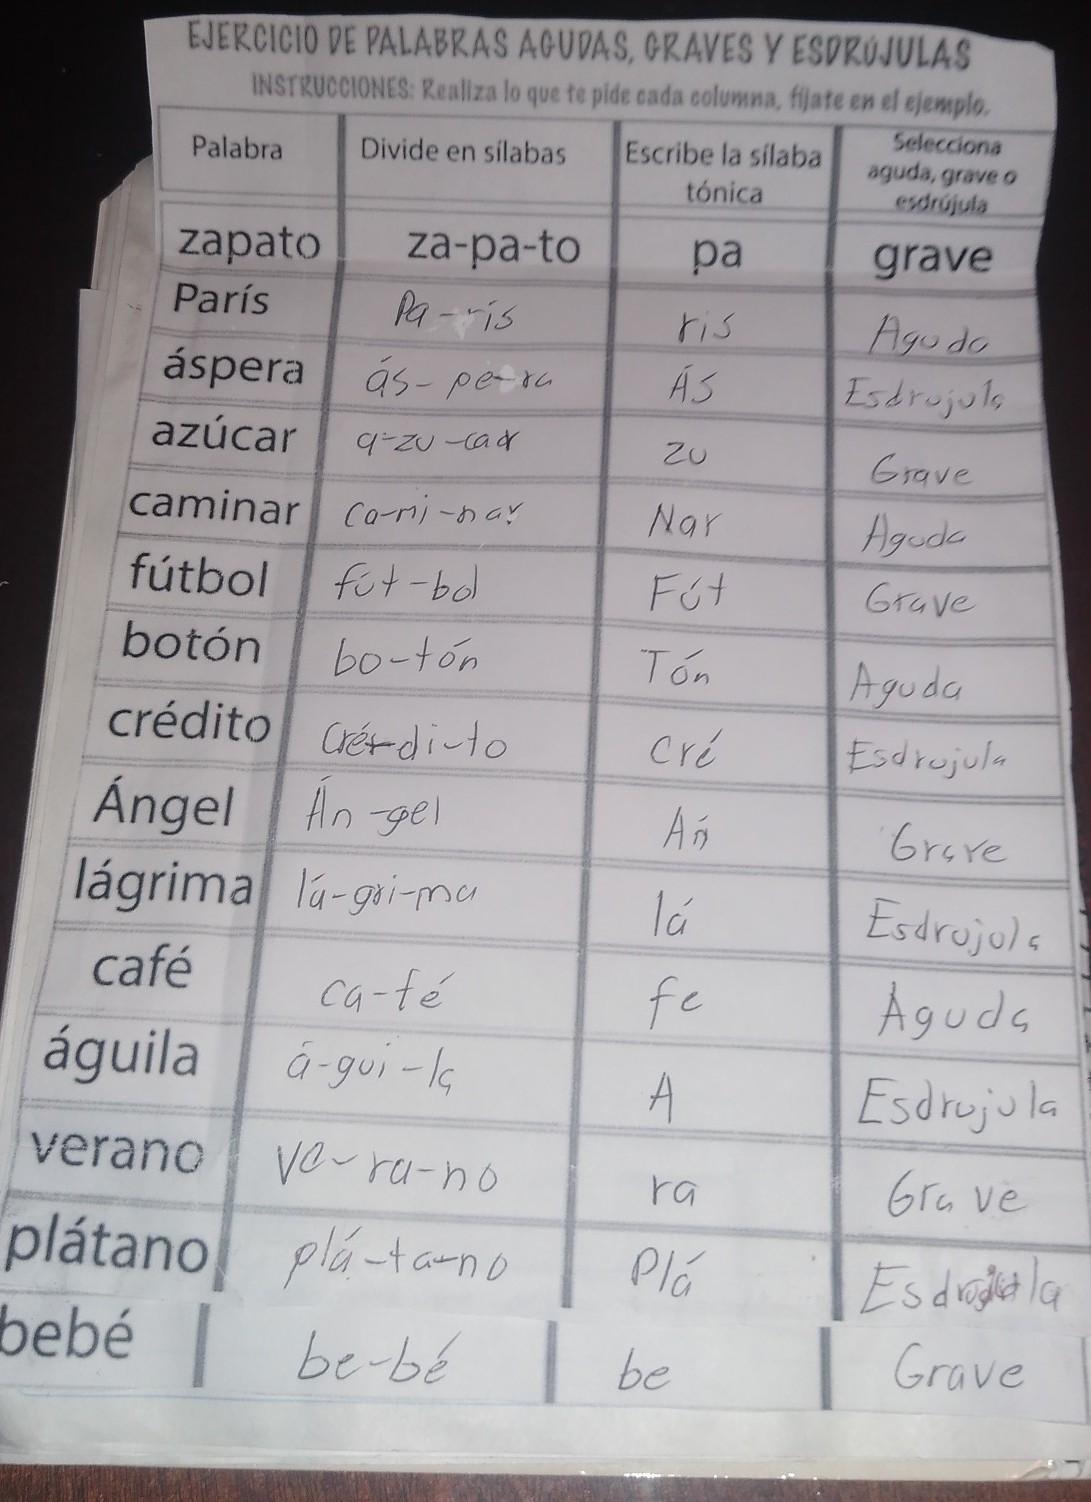 EJERCICIO DE PALABRAS AGUDAS, GRAVES Y ESDRÚJULAS
INSTRUCCIONES: Realiza lo que te pide cada columna, fíjate en el ejemplo.
Palabra Divide en sílabas Escribe la sílaba tónica Selecciona aguda, grave o esdrújula
zapato za-pa-to pa grave
París Pa-rís ris Aguda
áspera ás-pe-ra ÁS Esdrujula
azúcar a-zu-car zu Grave
caminar ca-mi-nar Nar Aguda
fútbol fút-bol Fút Grave
botón bo-tón Tón Aguda
crédito cré-di-to cré Esdrujula
Ángel Án-gel Án Grave
lágrima lá-gri-ma lá Esdrujula
café ca-fé fe Aguda
águila á-gui-la A Esdrujula
verano ve-ra-no ra Grave
plátano plá-ta-no Plá Esdrujula
bebé be-bé be Grave